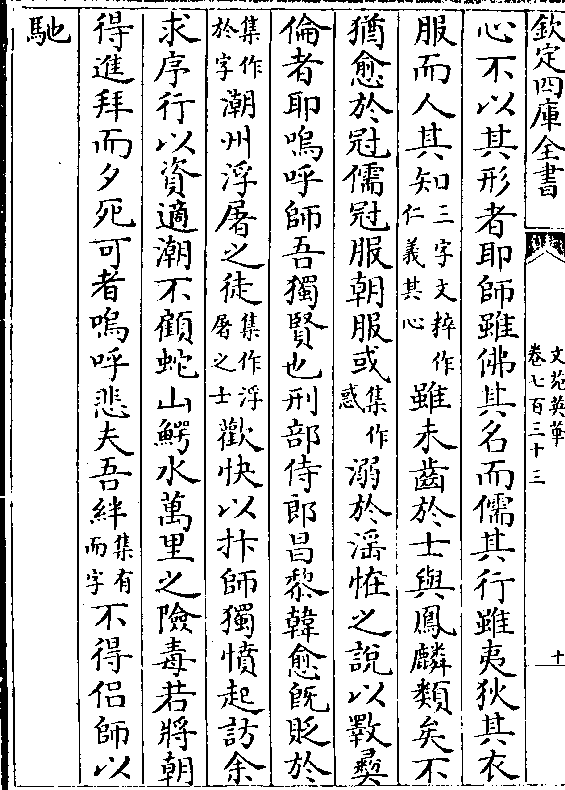 欽定四庫全書
文苑英華
卷七百三十三
十
心不以其形者耶師雖佛其名而儒其行雖夷狄其衣
服而人其知三字文粹作仁義其心雖未齒於士與鳳麟類矣不
猶愈於冠儒冠服朝服或集作惑溺於滛恠之說以斁彞
倫者耶嗚呼師吾獨賢也刑部侍郎昌黎韓愈旣貶於
集作於字潮州浮屠之徒集作浮屠之士歡快以抃師獨憤起訪余
求序行以資適潮不顧蛇山鰐水萬里之險毒若將朝
得進拜而夕死可者嗚呼悲夫吾絆集有而字不得侣師以
馳